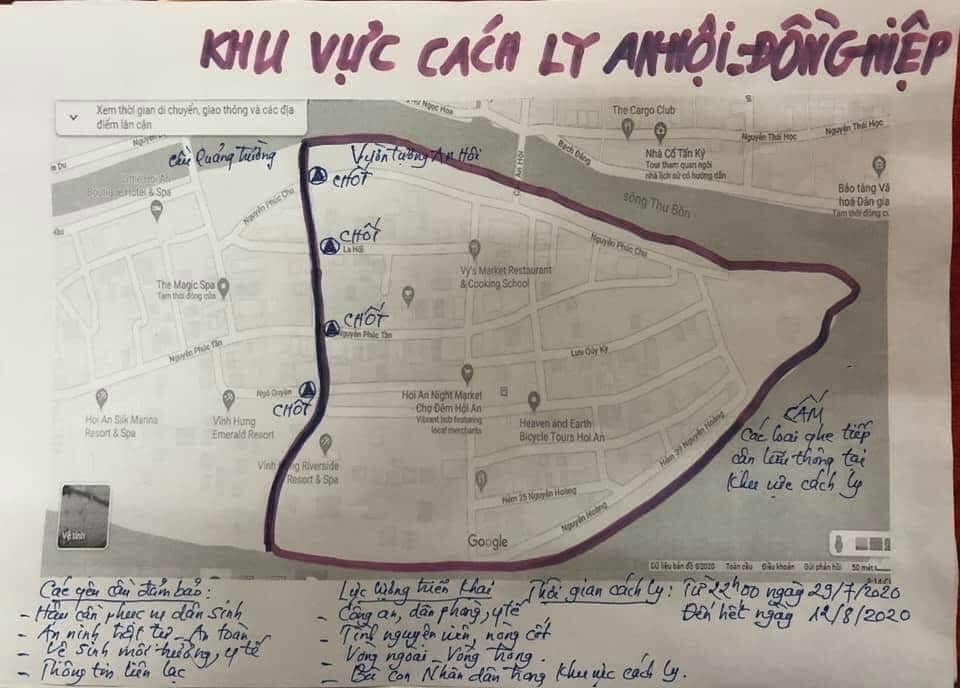 KHU VỰC CÁCH LY AN HỘI-ĐỒNG HIỆP
Xem thời gian di chuyển, giao thông và các địa
điểm lân cận
Ngọc Hoa
The Cargo Club
Nguyễn Thái Học
Nguyễn Thái Học
Bạch Đằng
Nhà Cổ Tấn Ký
Tour tham quan ngôi
nhà lịch sử có hướng dẫn
Bảo tàng Vă
hoá Dân gia
Tạm thời đóng cử
cầu Quảng trường
Vườn tượng An Hội
Little Hoi An
Boutique Hotel & Spa
CHỐT
An Hội
sông Thu Bồn
Nguyễn Phúc Chu
Nguyễn Phúc Chu
CHỐT
La Hối
Vy's Market Restaurant
& Cooking School
The Magic Spa
Tạm thời đóng cửa
CHỐT
Nguyễn Phúc Tần
Nguyễn Phúc Tần
Lưu Quý Kỳ
Ngô Quyền
CHỐT
Hoi An Silk Marina
Resort & Spa
Vinh Hung
Emerald Resort
Hoi An Night Market
Chợ Đêm Hội An
Vibrant hub featuring
local merchants
Heaven and Earth
Bicycle Tours Hoi An
CẤM
Các loại ghe tiếp
cận lưu thông tại
khu vực cách ly
Hẻm 39 Nguyễn Hoàng
Vinh Hung Riverside
Resort & Spa
Hẻm 25 Nguyễn Hoàng
Nguyễn Hoàng
Vệ tinh
Google
Dữ liệu bản đồ ©2020 Toàn cầu Điều khoản Gửi phản hồi 50 mét
Các yêu cầu đảm bảo:
- Hậu cần phục vụ dân sinh
- An ninh trật tự - An toàn
- Vệ sinh môi trường, y tế
- Thông tin liên lạc
Lực lượng triển khai
- Công an, dân phòng, y tế
- Tình nguyện viên, nòng cốt
- Vòng ngoài - Vòng trong.
- Bà con Nhân dân trong khu vực cách ly.
Thời gian cách ly: Từ 22h00 ngày 29/7/2020
Đến hết ngày 12/8/2020